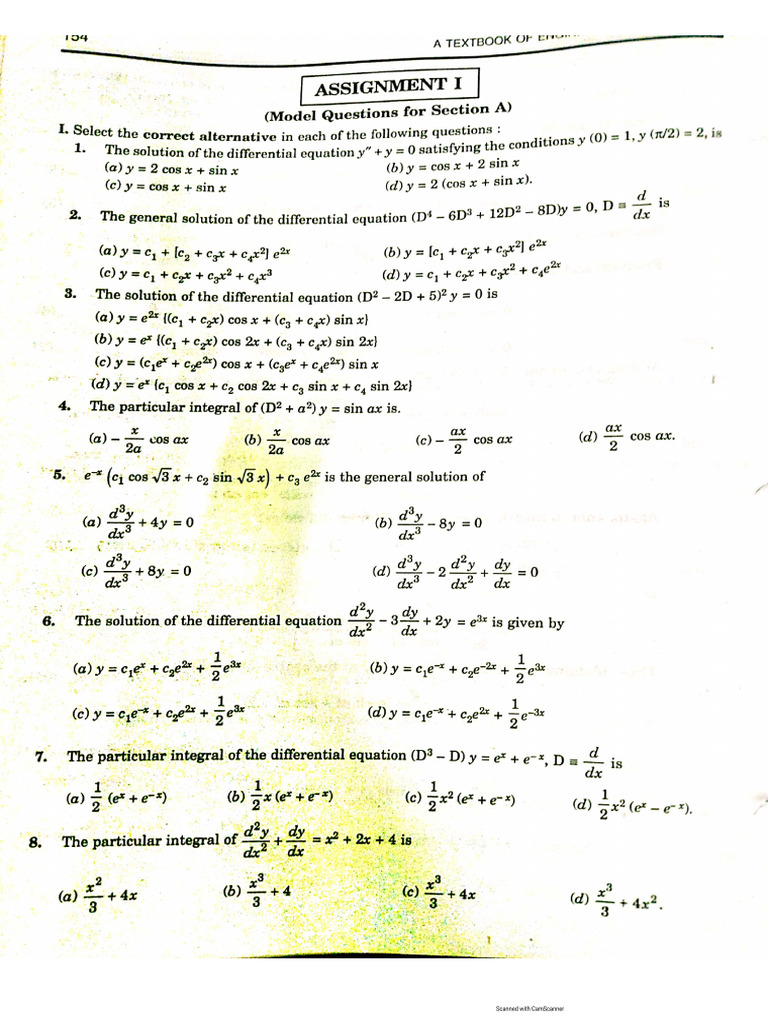 154
A TEXTBOOK OF
ASSIGNMENT I
(Model Questions for Section A)
I. Select the correct alternative in each of the following questions :
1. The solution of the differential equation y″ + y = 0 satisfying the conditions y (0) = 1, y (π/2) = 2, is
(a) y = 2 cos x + sin x (b) y = cos x + 2 sin x
(c) y = cos x + sin x (d) y = 2 (cos x + sin x).
2. The general solution of the differential equation (D⁴ – 6D³ + 12D² – 8D)y = 0, D ≡ d/dx is
(a) y = c₁ + [c₂ + c₃x + c₄x²] e²ˣ (b) y = [c₁ + c₂x + c₃x²] e²ˣ
(c) y = c₁ + c₂x + c₃x² + c₄x³ (d) y = c₁ + c₂x + c₃x² + c₄e²ˣ
3. The solution of the differential equation (D² – 2D + 5)² y = 0 is
(a) y = e²ˣ {(c₁ + c₂x) cos x + (c₃ + c₄x) sin x}
(b) y = eˣ {(c₁ + c₂x) cos 2x + (c₃ + c₄x) sin 2x}
(c) y = (c₁eˣ + c₂e²ˣ) cos x + (c₃eˣ + c₄e²ˣ) sin x
(d) y = eˣ {c₁ cos x + c₂ cos 2x + c₃ sin x + c₄ sin 2x}
4. The particular integral of (D² + a²) y = sin ax is.
(a) – x/2a cos ax (b) x/2a cos ax (c) – ax/2 cos ax (d) ax/2 cos ax.
5. e⁻ˣ (c₁ cos √3 x + c₂ sin √3 x) + c₃ e²ˣ is the general solution of
(a) d³y/dx³ + 4y = 0 (b) d³y/dx³ – 8y = 0
(c) d³y/dx³ + 8y = 0 (d) d³y/dx³ – 2 d²y/dx² + dy/dx = 0
6. The solution of the differential equation d²y/dx² – 3 dy/dx + 2y = e³ˣ is given by
(a) y = c₁eˣ + c₂e²ˣ + 1/2 e³ˣ (b) y = c₁e⁻ˣ + c₂e⁻²ˣ + 1/2 e³ˣ
(c) y = c₁e⁻ˣ + c₂e²ˣ + 1/2 e³ˣ (d) y = c₁e⁻ˣ + c₂e²ˣ + 1/2 e⁻³ˣ
7. The particular integral of the differential equation (D³ – D) y = eˣ + e⁻ˣ, D ≡ d/dx is
(a) 1/2 (eˣ + e⁻ˣ) (b) 1/2 x (eˣ + e⁻ˣ) (c) 1/2 x² (eˣ + e⁻ˣ) (d) 1/2 x² (eˣ – e⁻ˣ).
8. The particular integral of d²y/dx² + dy/dx = x² + 2x + 4 is
(a) x²/3 + 4x (b) x³/3 + 4 (c) x³/3 + 4x (d) x³/3 + 4x².
Scanned with CamScanner